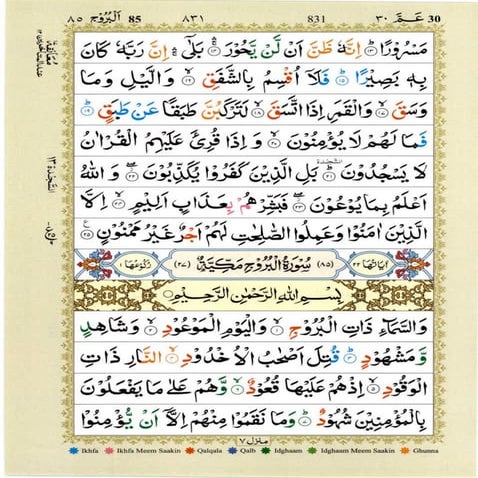 ٨٥ اَلْبُرُوْج 85 ٨٣١ 831 ٣٠ عَمَّ 30
مَسْرُوْرًا ﴿١٣﴾ اِنَّهٗ ظَنَّ اَنْ لَّنْ يَّحُوْرَ ﴿١٤﴾ بَلٰٓى ۛۚ اِنَّ رَبَّهٗ كَانَ
بِهٖ بَصِيْرًا ﴿١٥﴾ فَلَاۤ اُقْسِمُ بِالشَّفَقِ ﴿١٦﴾ وَالَّيْلِ وَمَا
وَسَقَ ﴿١٧﴾ وَالْقَمَرِ اِذَا اتَّسَقَ ﴿١٨﴾ لَتَرْكَبُنَّ طَبَقًا عَنْ طَبَقٍ ﴿١٩﴾
فَمَا لَهُمْ لَا يُؤْمِنُوْنَ ﴿٢٠﴾ وَ اِذَا قُرِئَ عَلَيْهِمُ الْقُرْاٰنُ
لَا يَسْجُدُوْنَ ﴿٢١﴾ بَلِ الَّذِيْنَ كَفَرُوْا يُكَذِّبُوْنَ ﴿٢٢﴾ وَ اللّٰهُ
اَعْلَمُ بِمَا يُوْعُوْنَ ﴿٢٣﴾ فَبَشِّرْهُمْ بِعَذَابٍ اَلِيْمٍ ﴿٢٤﴾ اِلَّا
الَّذِيْنَ اٰمَنُوْا وَعَمِلُوا الصّٰلِحٰتِ لَهُمْ اَجْرٌ غَيْرُ مَمْنُوْنٍ ﴿٢٥﴾
اٰيَاتُهَا ٢٢ (٨٥) سُوْرَةُ الْبُرُوْجِ مَكِّيَّةٌ (٢٧) رُكُوْعُهَا ١
بِسْمِ اللّٰهِ الرَّحْمٰنِ الرَّحِيْمِ
وَالسَّمَآءِ ذَاتِ الْبُرُوْجِ ﴿١﴾ وَالْيَوْمِ الْمَوْعُوْدِ ﴿٢﴾ وَشَاهِدٍ
وَّمَشْهُوْدٍ ﴿٣﴾ قُتِلَ اَصْحٰبُ الْاُخْدُوْدِ ﴿٤﴾ النَّارِ ذَاتِ
الْوَقُوْدِ ﴿٥﴾ اِذْ هُمْ عَلَيْهَا قُعُوْدٌ ﴿٦﴾ وَّهُمْ عَلٰى مَا يَفْعَلُوْنَ
بِالْمُؤْمِنِيْنَ شُهُوْدٌ ﴿٧﴾ وَمَا نَقَمُوْا مِنْهُمْ اِلَّاۤ اَنْ يُّؤْمِنُوْا
منزل ٧
السَّجْدَة ١٣
Ikhfa Ikhfa Meem Saakin Qalqala Qalb Idghaam Idghaam Meem Saakin Ghunna